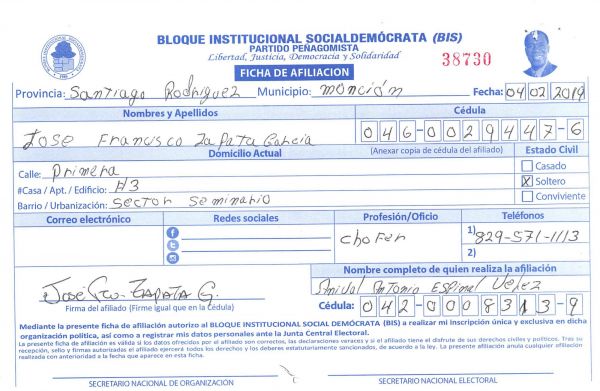 BLOQUE INSTITUCIONAL SOCIALDEMÓCRATA (BIS)
PARTIDO PEÑAGOMISTA
Libertad, Justicia, Democracia y Solidaridad
38730
FICHA DE AFILIACION
Provincia: Santiago Rodriguez Municipio: Monción Fecha: 04 02 2019
Nombres y Apellidos Cédula
Jose Francisco Zapata Garcia 046-0029447-6
Domicilio Actual (Anexar copia de cédula del afiliado) Estado Civil
Calle: Primera Casado
#Casa / Apt. / Edificio: #3 X Soltero
Barrio / Urbanización: Sector Seminario Conviviente
Correo electrónico Redes sociales Profesión/Oficio Teléfonos
Chofer 1) 829-571-1113
2)
Nombre completo de quien realiza la afiliación
José Fco. Zapata G. Anival Antonio Espinal Velez
Firma del afiliado (Firme igual que en la Cédula) Cédula: 042-0008313-9
Mediante la presente ficha de afiliación autorizo al BLOQUE INSTITUCIONAL SOCIAL DEMÓCRATA (BIS) a realizar mi inscripción única y exclusiva en dicha
organización política, así como a registrar mis datos personales ante la Junta Central Electoral.
La presente ficha de afiliación es válida si los datos ofrecidos por el afiliado son correctos, las declaraciones veraces y si el afiliado tiene el disfrute de sus derechos civiles y políticos. Tras su
recepción, sello y firmas autorizadas el afiliado ejercerá todos los derechos y los deberes estatutariamente sancionados, de acuerdo a la ley. La presente afiliación anula cualquier afiliación
realizada con anterioridad a la fecha que aparece en esta ficha.
SECRETARIO NACIONAL DE ORGANIZACIÓN SECRETARIO NACIONAL ELECTORAL